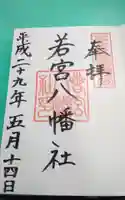 奉拝
若宮八幡社
平成二十九年五月十四日